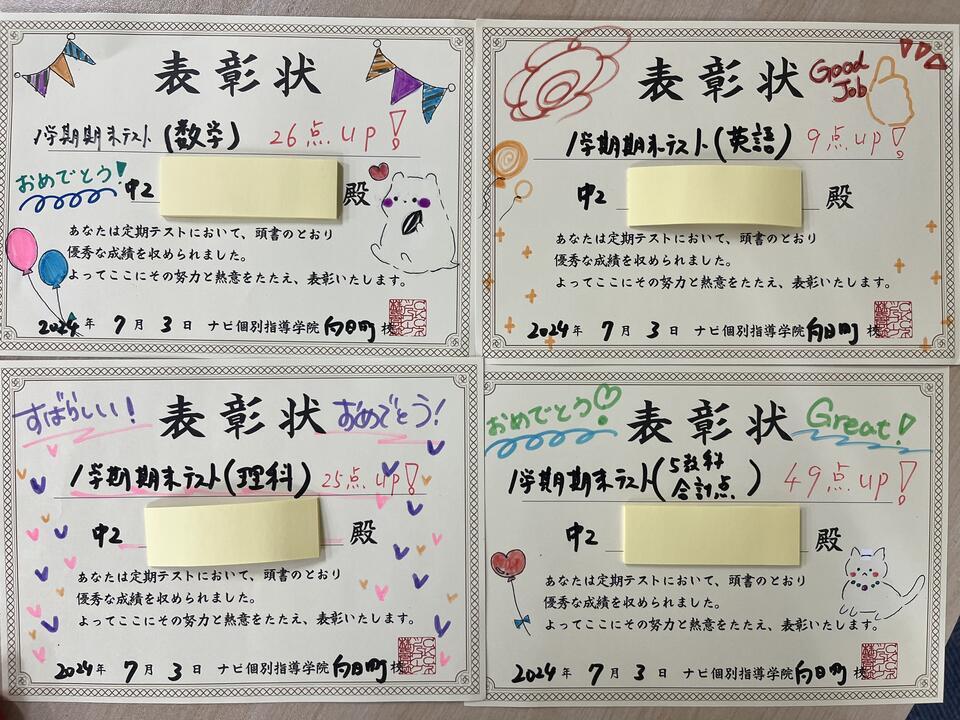 表彰状
1学期期末テスト(数学) 26点up!
おめでとう!
中2 殿
あなたは定期テストにおいて、頭書のとおり
優秀な成績を収められました。
よってここにその努力と熱意をたたえ、表彰いたします。
2024年 7月 3日 ナビ個別指導学院 向日町 校
表彰状
Good
Job
1学期期末テスト(英語) 9点up!
中2 殿
あなたは定期テストにおいて、頭書のとおり
優秀な成績を収められました。
よってここにその努力と熱意をたたえ、表彰いたします。
2024年 7月 3日 ナビ個別指導学院 向日町 校
すばらしい! 表彰状 おめでとう!
1学期期末テスト(理科) 25点up!
中2 殿
あなたは定期テストにおいて、頭書のとおり
優秀な成績を収められました。
よってここにその努力と熱意をたたえ、表彰いたします。
2024年 7月 3日 ナビ個別指導学院 向日町 校
おめでとう! 表彰状 Great!
1学期期末テスト(5教科合計点) 49点up!
中2 殿
あなたは定期テストにおいて、頭書のとおり
優秀な成績を収められました。
よってここにその努力と熱意をたたえ、表彰いたします。
2024年 7月 3日 ナビ個別指導学院 向日町 校